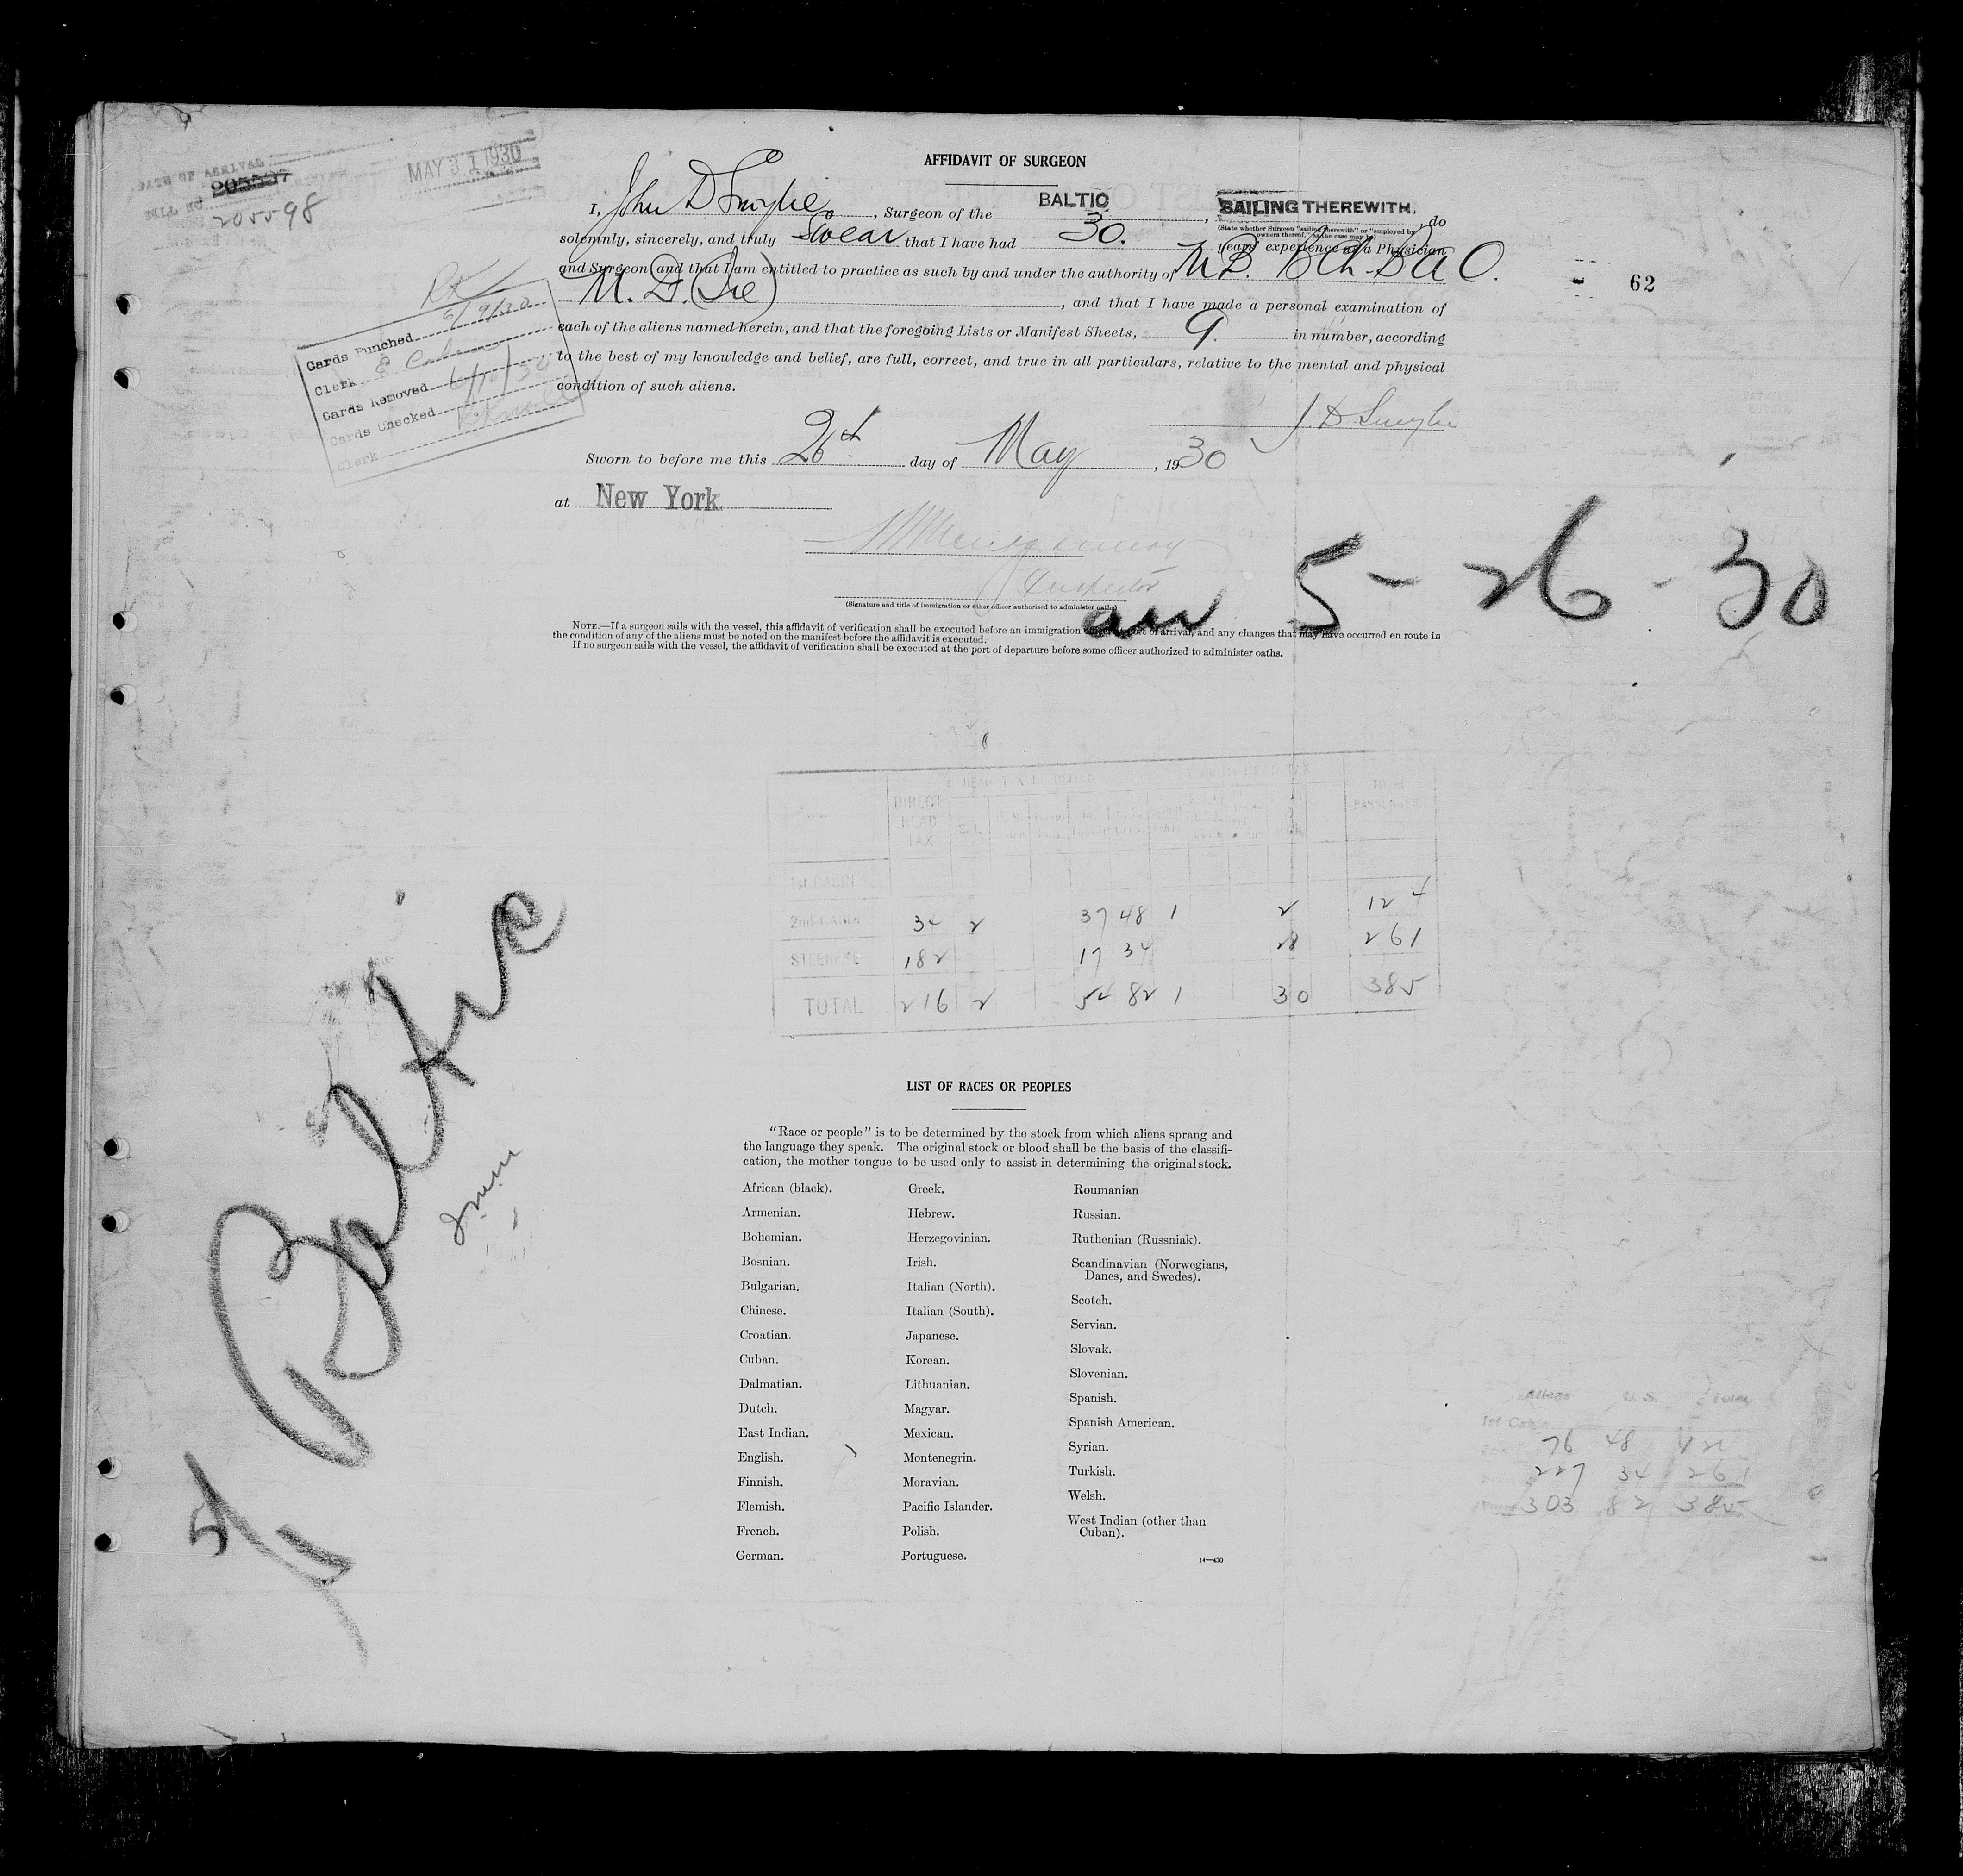 DATE OF ARRIVAL
MAY 31 1930
205597
205598
AFFIDAVIT OF SURGEON
I, John D Smylie, Surgeon of the BALTIC, SAILING THEREWITH, do
(State whether Surgeon "sailing therewith" or "employed by owners thereof," as the case may be)
solemnly, sincerely, and truly swear that I have had 30. years' experience as a Physician
and Surgeon and that I am entitled to practice as such by and under the authority of M.B. B Ch. B A O.
, and that I have made a personal examination of
each of the aliens named herein, and that the foregoing Lists or Manifest Sheets, 9. in number, according
to the best of my knowledge and belief, are full, correct, and true in all particulars, relative to the mental and physical
condition of such aliens.
J. D. Smylie
62
Cards Punched 6/9/30
Clerk
Cards Removed 6/10/30
Cards Checked
Clerk
Sworn to before me this 26th day of May, 1930
at New York
Montgomery
Inspector
(Signature and title of immigration or other officer authorised to administer oaths)
5-26-30
NOTE.—If a surgeon sails with the vessel, this affidavit of verification shall be executed before an immigration of arrival, and any changes that may have occurred en route in
the condition of any of the aliens must be noted on the manifest before the affidavit is executed.
If no surgeon sails with the vessel, the affidavit of verification shall be executed at the port of departure before some officer authorized to administer oaths.
DIRECT HEAD TAX
1st CABIN
2nd CABIN 34 2 37 48 1 2 124
STEERAGE 182 17 34 28 261
TOTAL 216 2 54 82 1 30 385
Baltic
LIST OF RACES OR PEOPLES
"Race or people" is to be determined by the stock from which aliens sprang and
the language they speak. The original stock or blood shall be the basis of the classifi-
cation, the mother tongue to be used only to assist in determining the original stock.
African (black).
Armenian.
Bohemian.
Bosnian.
Bulgarian.
Chinese.
Croatian.
Cuban.
Dalmatian.
Dutch.
East Indian.
English.
Finnish.
Flemish.
French.
German.
Greek.
Hebrew.
Herzegovinian.
Irish.
Italian (North).
Italian (South).
Japanese.
Korean.
Lithuanian.
Magyar.
Mexican.
Montenegrin.
Moravian.
Pacific Islander.
Polish.
Portuguese.
Roumanian
Russian.
Ruthenian (Russniak).
Scandinavian (Norwegians,
Danes, and Swedes).
Scotch.
Servian.
Slovak.
Slovenian.
Spanish.
Spanish American.
Syrian.
Turkish.
Welsh.
West Indian (other than
Cuban).
14—430
Aliens U.S. Total
1st Cabin
76 48 124
227 34 261
303 82 385